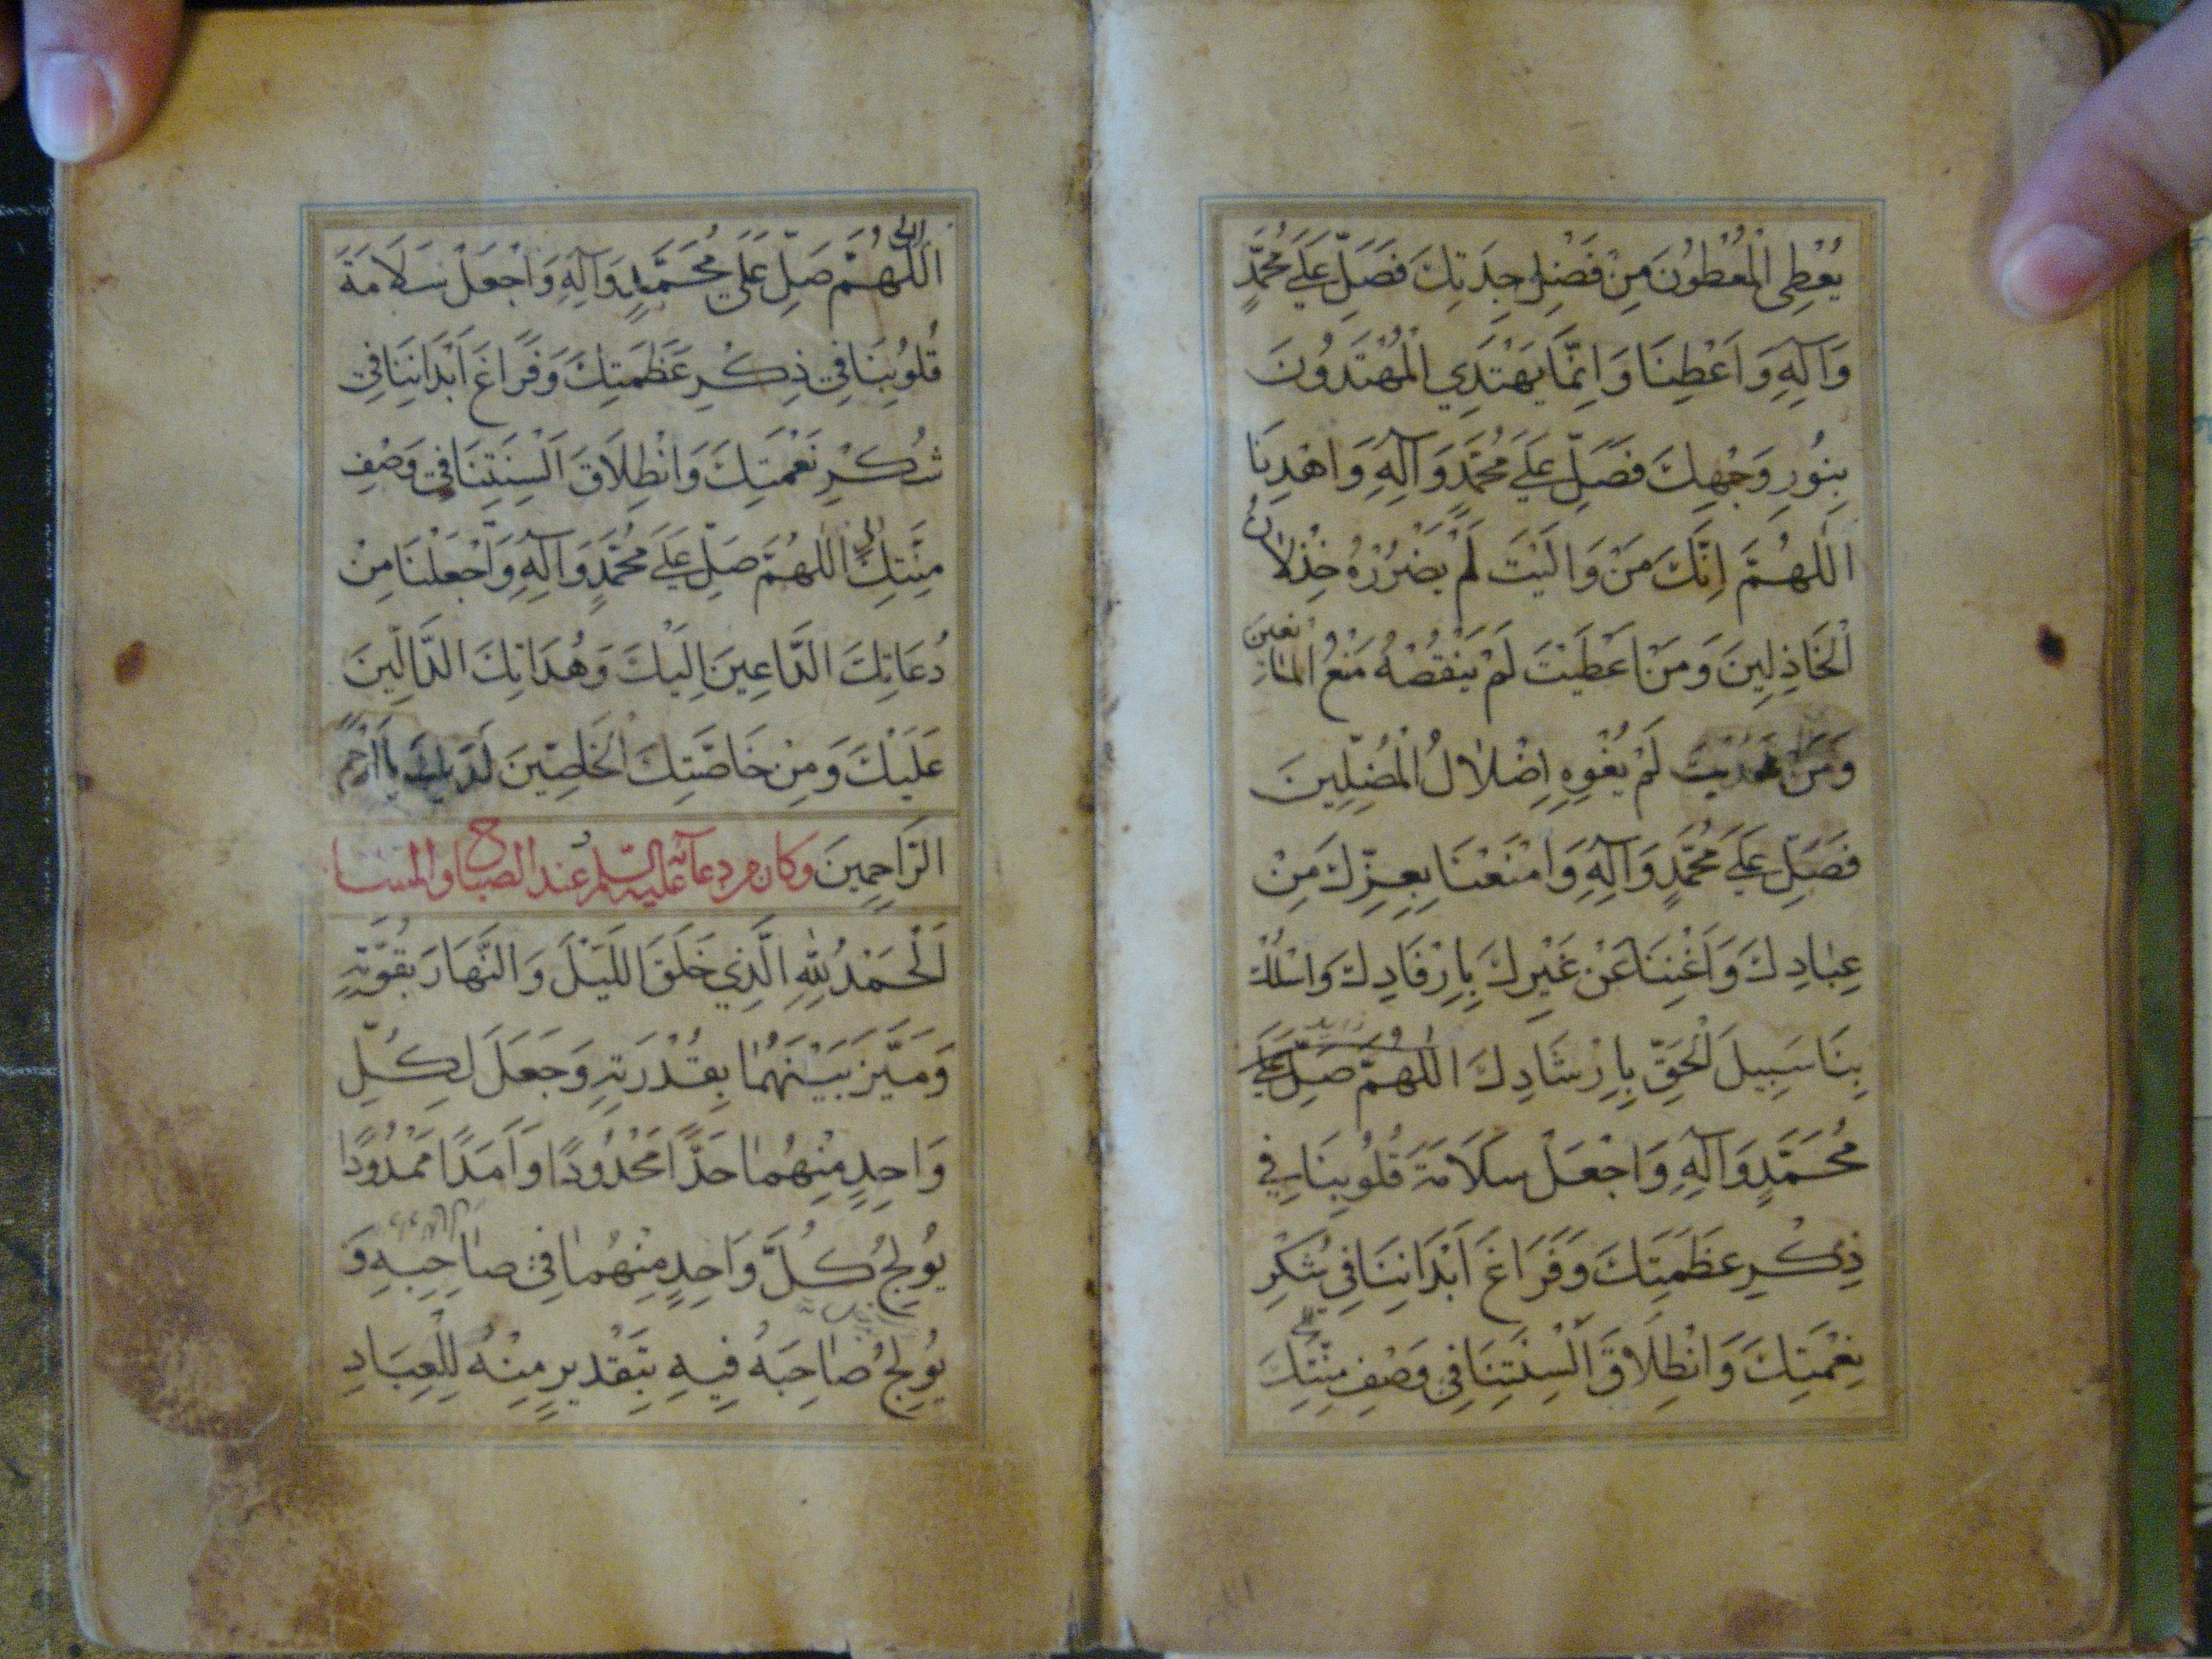 يُعْطِى الْمُعْطُونَ مِنْ فَضْلِ جِدَتِكَ فَصَلِّ عَلَى مُحَمَّدٍ
وَآلِهِ وَاَعْطِنَا وَاِنَّمَا يَهْتَدِي الْمُهْتَدُونَ
بِنُورِ وَجْهِكَ فَصَلِّ عَلَى مُحَمَّدٍ وَآلِهِ وَاهْدِنَا
اَللّٰهُمَّ اِنَّكَ مَنْ وَالَيْتَ لَمْ يَضْرُرْهُ خِذْلَانُ
الْخَاذِلِينَ وَمَنْ اَعْطَيْتَ لَمْ يَنْقُصْهُ مَنْعُ الْمَانِعِينَ
وَمَنْ هَدَيْتَ لَمْ يُغْوِهِ اِضْلَالُ الْمُضِلِّينَ
فَصَلِّ عَلَى مُحَمَّدٍ وَآلِهِ وَامْنَعْنَا بِعِزِّكَ مِنْ
عِبَادِكَ وَاَغْنِنَا عَنْ غَيْرِكَ بِاِرْفَادِكَ وَاسْلُكْ
بِنَا سَبِيلَ الْحَقِّ بِاِرْشَادِكَ اَللّٰهُمَّ صَلِّ عَلَى
مُحَمَّدٍ وَآلِهِ وَاجْعَلْ سَلَامَةَ قُلُوبِنَا فِي
ذِكْرِ عَظَمَتِكَ وَفَرَاغَ اَبْدَانِنَا فِي شُكْرِ
نِعْمَتِكَ وَانْطِلَاقَ اَلْسِنَتِنَا فِي وَصْفِ مِنَّتِكَ
اَللّٰهُمَّ صَلِّ عَلَى مُحَمَّدٍ وَآلِهِ وَاجْعَلْ سَلَامَةَ
قُلُوبِنَا فِي ذِكْرِ عَظَمَتِكَ وَفَرَاغَ اَبْدَانِنَا فِي
شُكْرِ نَعْمَتِكَ وَانْطِلَاقَ اَلْسِنَتِنَا فِي وَصْفِ
مِنَّتِكَ اَللّٰهُمَّ صَلِّ عَلَى مُحَمَّدٍ وَآلِهِ وَاجْعَلْنَا مِنْ
دُعَاتِكَ الدَّاعِينَ اِلَيْكَ وَهُدَاتِكَ الدَّالِّينَ
عَلَيْكَ وَمِنْ خَاصَّتِكَ الْخَاصِّينَ لَدَيْكَ يَا اَرْحَمَ
الرَّاحِمِينَ وكان من دعائه عليه السّلم عند الصباح والمسا
اَلْحَمْدُ لِلّٰهِ الَّذِي خَلَقَ اللَّيْلَ وَالنَّهَارَ بِقُوَّتِهِ
وَمَيَّزَ بَيْنَهُمَا بِقُدْرَتِهِ وَجَعَلَ لِكُلِّ
وَاحِدٍ مِنْهُمَا حَدًّا مَحْدُودًا وَاَمَدًا مَمْدُودًا
يُولِجُ كُلَّ وَاحِدٍ مِنْهُمَا فِي صَاحِبِهِ وَ
يُولِجُ صَاحِبَهُ فِيهِ بِتَقْدِيرٍ مِنْهُ لِلْعِبَادِ